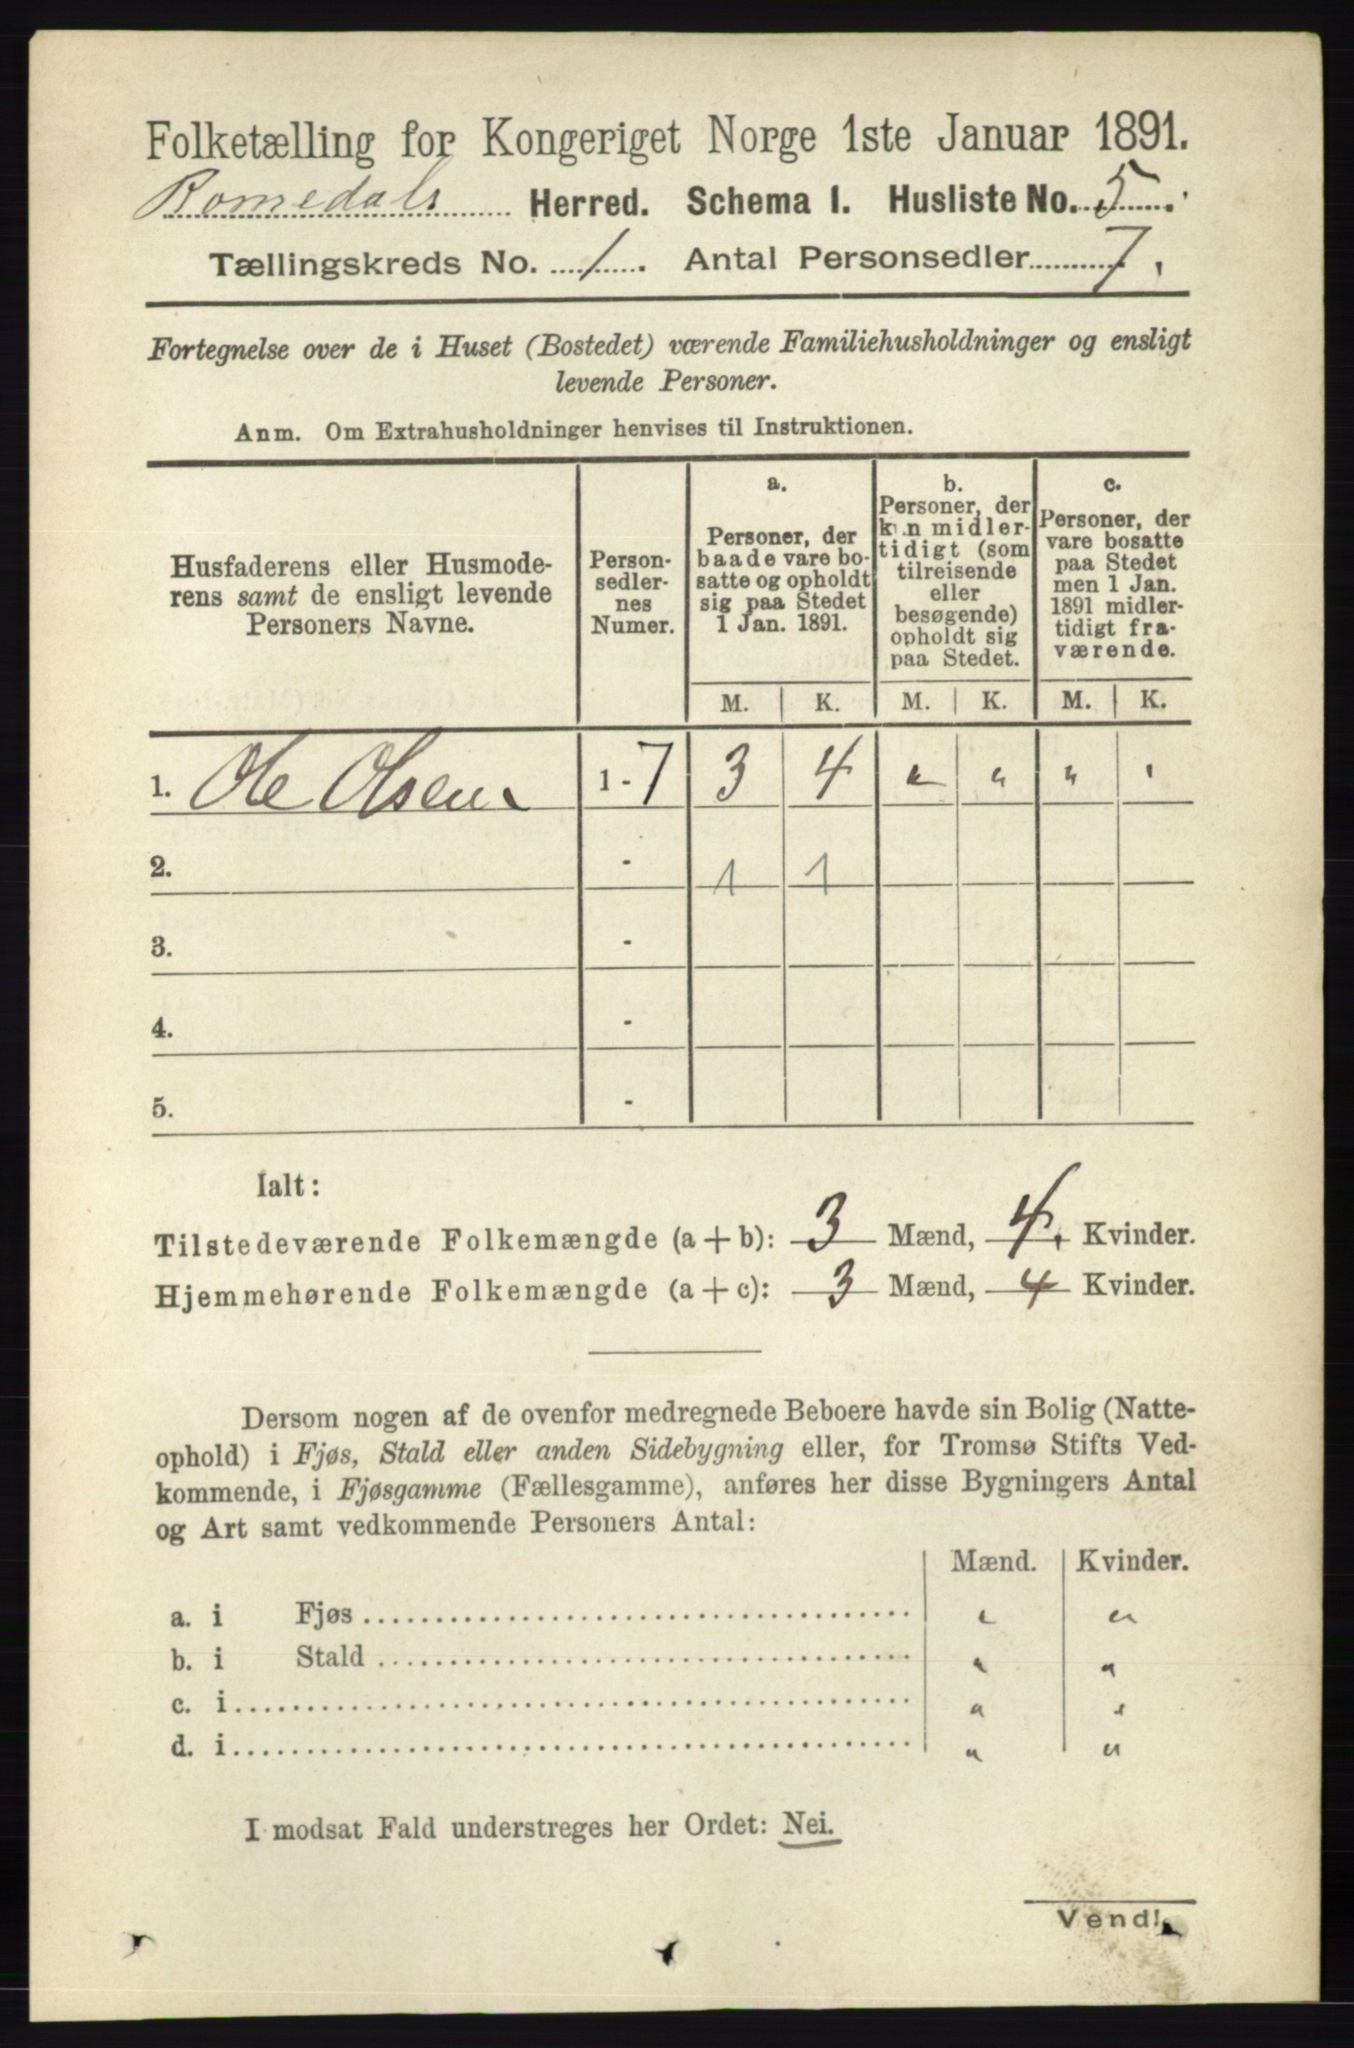 Folketælling for Kongeriget Norge 1ste Januar 1891.
Romedals Herred. Schema I. Husliste No. 5.
Tællingskreds No. 1. Antal Personsedler 7.
Fortegnelse over de i Huset (Bostedet) værende Familiehusholdninger og ensligt
levende Personer.
Anm. Om Extrahusholdninger henvises til Instruktionen.
Husfaderens eller Husmode-
rens samt de ensligt levende
Personers Navne.
Person-
sedler-
nes
Numer.
a.
Personer, der
baade vare bo-
satte og opholdt
sig paa Stedet
1 Jan. 1891.
b.
Personer, der
kun midler-
tidigt (som
tilreisende
eller
besøgende)
opholdt sig
paa Stedet.
c.
Personer, der
vare bosatte
paa Stedet
men 1 Jan.
1891 midler-
tidigt fra-
værende.
M. K. M. K. M. K.
1. Ole Olsen 1 - 7 3 4 " " " "
2. - 1 1
3. -
4. -
5. -
Ialt:
Tilstedeværende Folkemængde (a + b): 3 Mænd, 4. Kvinder.
Hjemmehørende Folkemængde (a + c): 3 Mænd, 4 Kvinder.
Dersom nogen af de ovenfor medregnede Beboere havde sin Bolig (Natte-
ophold) i Fjøs, Stald eller anden Sidebygning eller, for Tromsø Stifts Ved-
kommende, i Fjøsgamme (Fællesgamme), anføres her disse Bygningers Antal
og Art samt vedkommende Personers Antal:
Mænd. Kvinder.
a. i Fjøs " "
b. i Stald " "
c. i " "
d. i " "
I modsat Fald understreges her Ordet: Nei.
Vend!